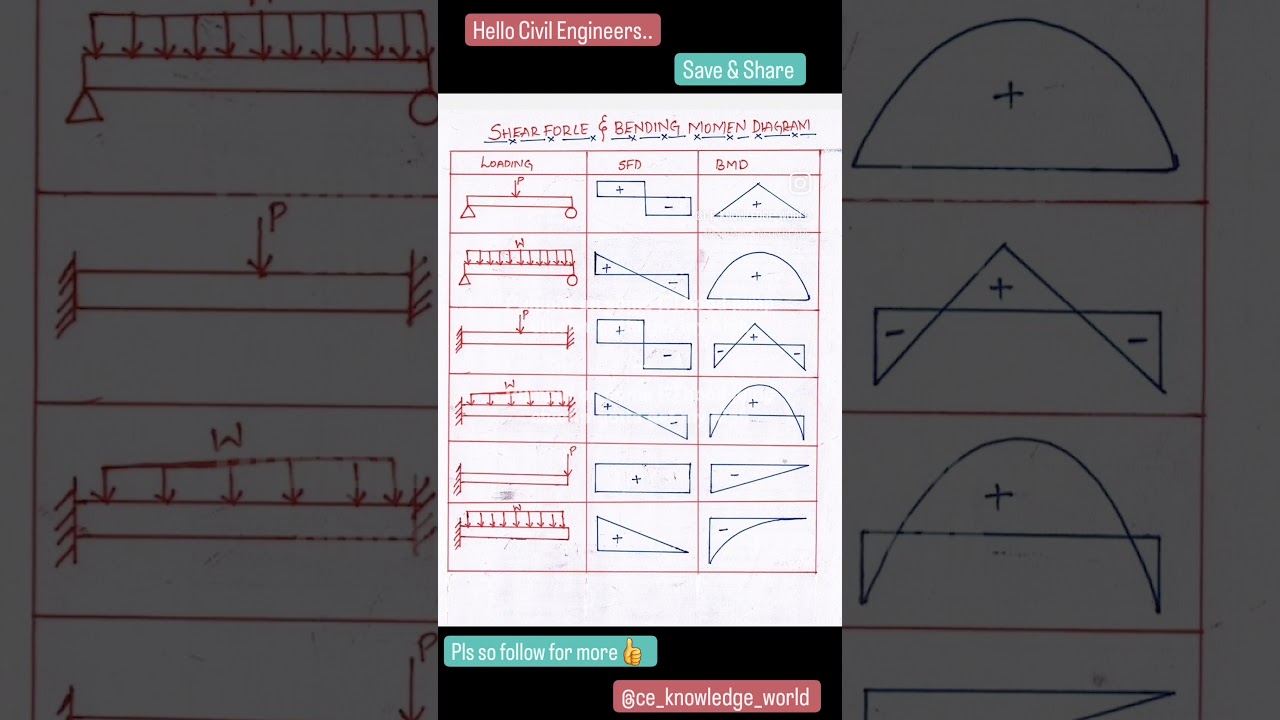 Hello Civil Engineers..
Save & Share
SHEAR FORLE & BENDING MOMEN DIAGRAM
LOADING SFD BMD
P
+ - +
W
+ - +
P
+ - - + -
W
+ - +
P
+ -
W
+ -
Pls so follow for more👍
@ce_knowledge_world
P
W
P
+
- + -
+